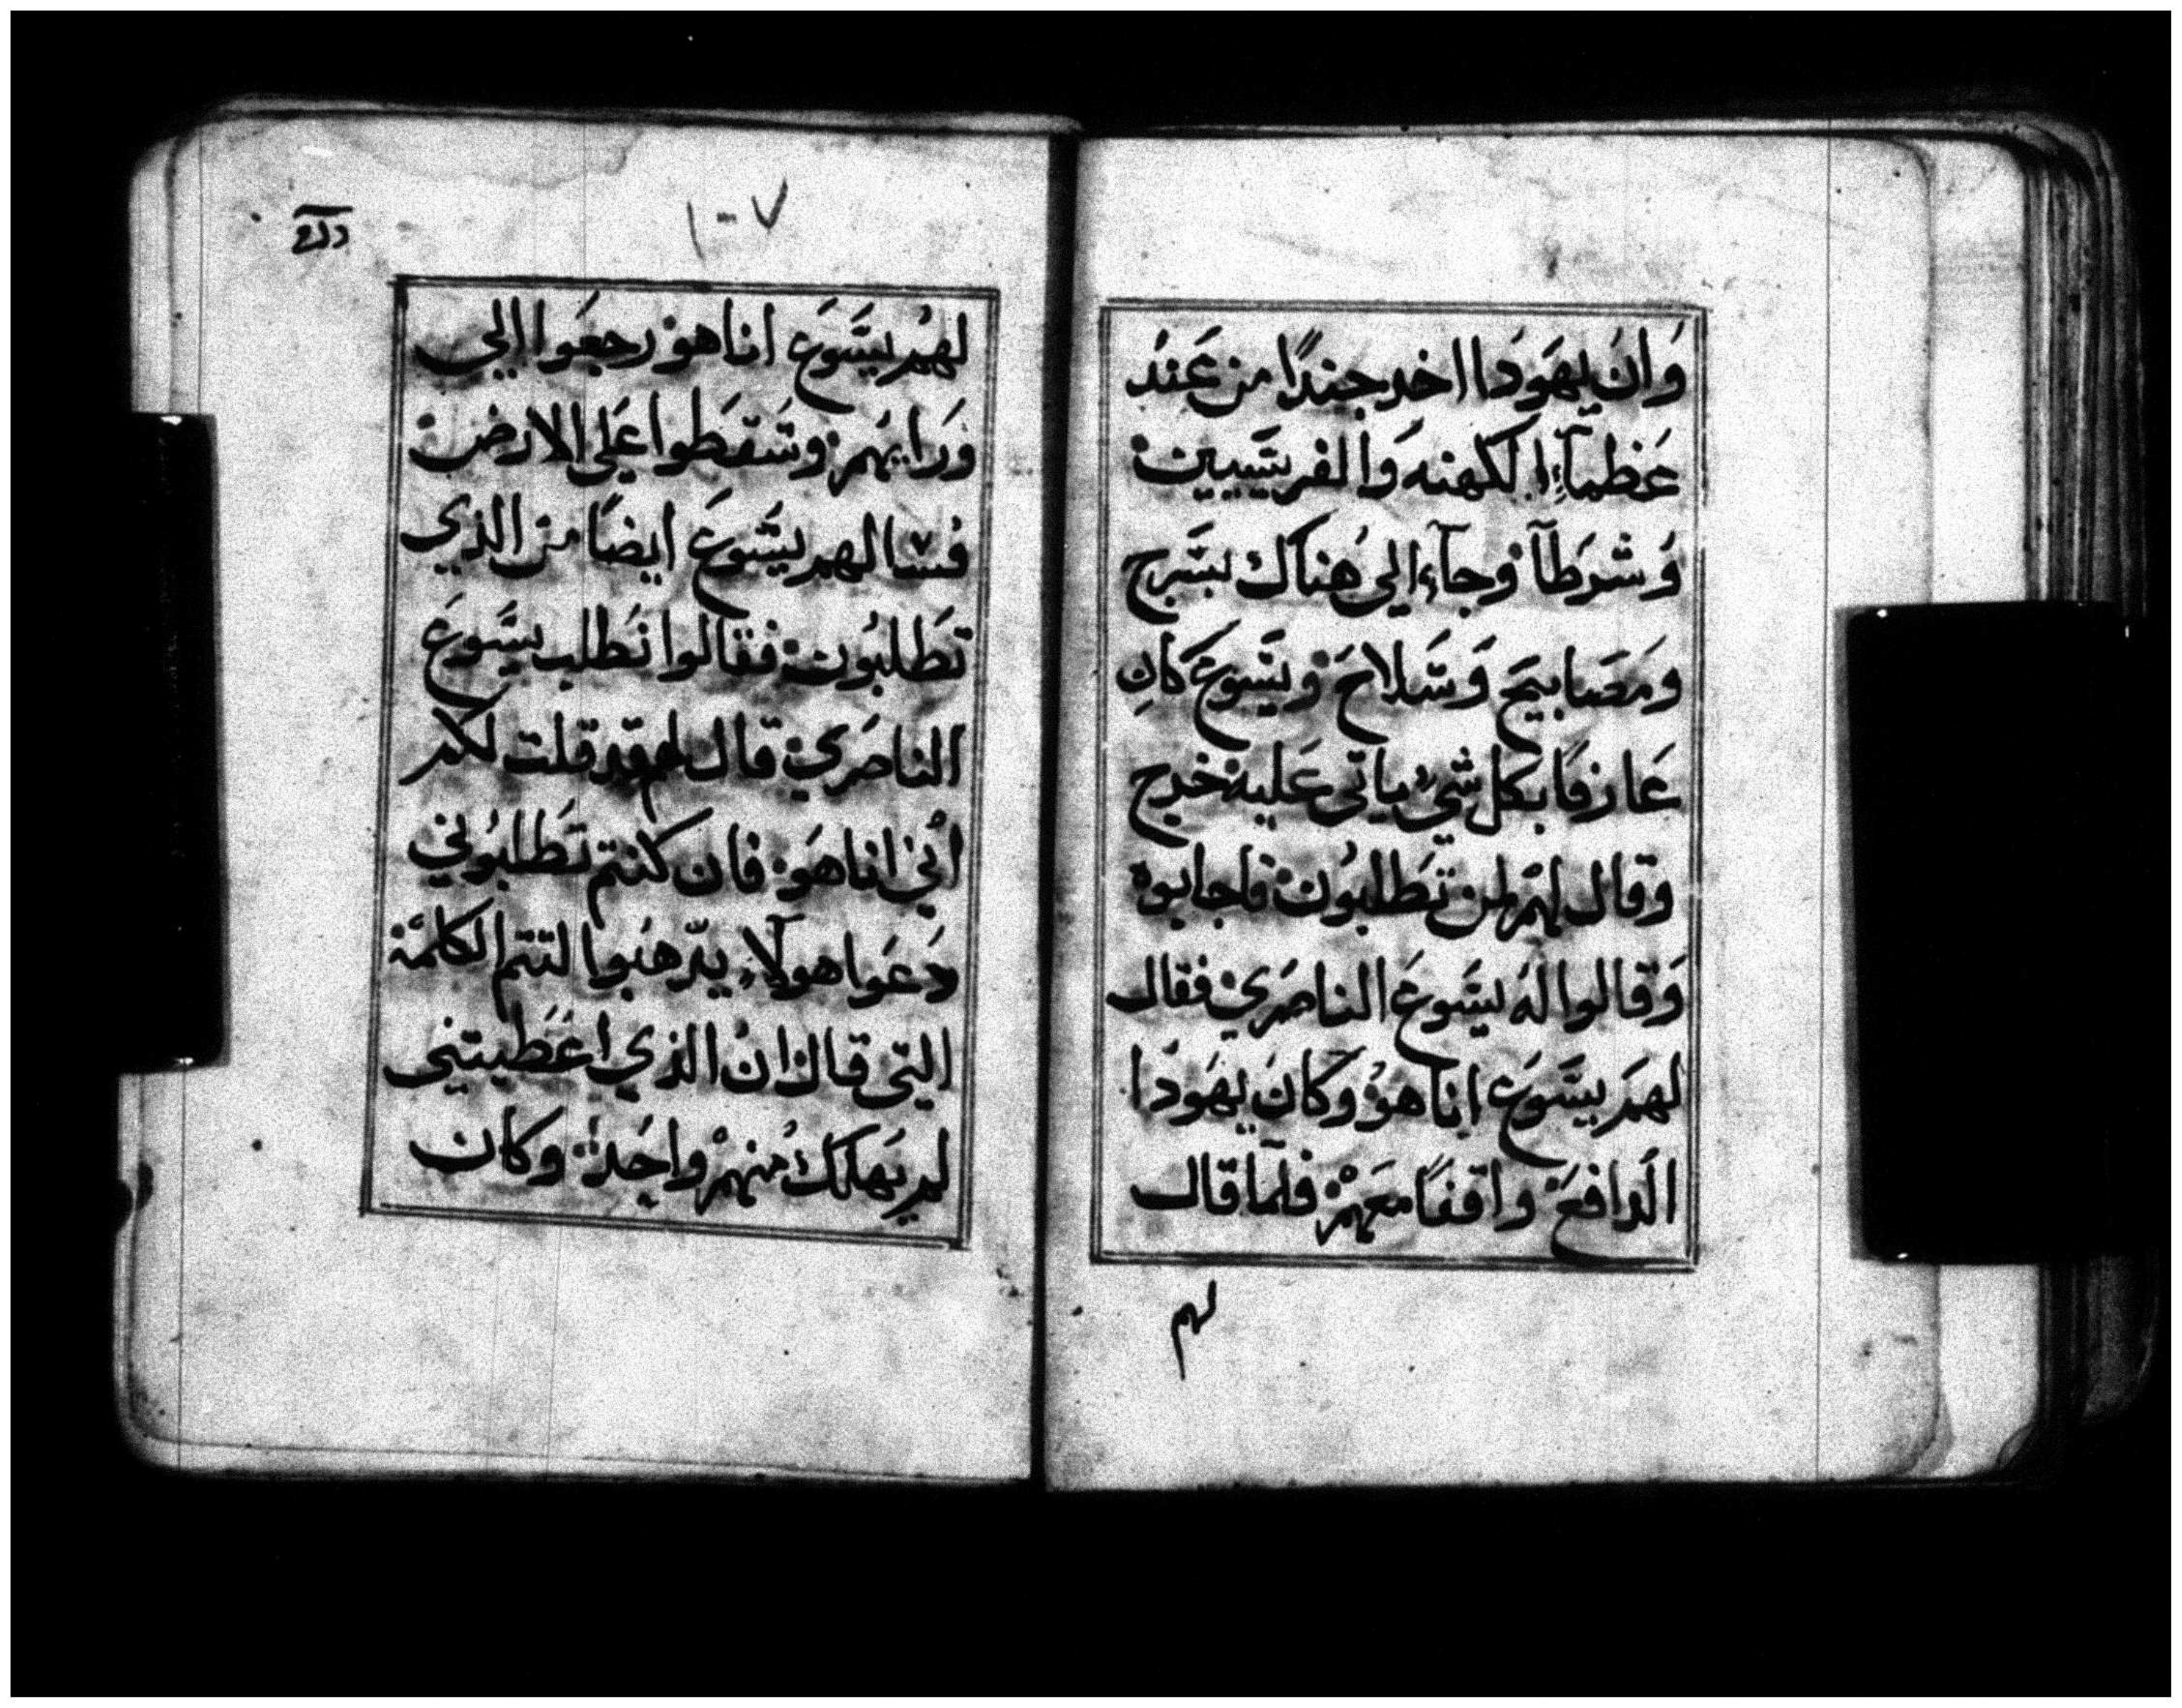 وَانَ يهَودَا اخد جندًا من عَند
عَظمآءِ الكهنه وَالفريسيين
وَشرَطآ وجآء الي هُناك بسَرج
ومَصَابيح وَسَلاحَ ويسَوعَ كانِ
عَارفَا بكل شيء ياتي عَليه خرج
وقال لهْم لمن تَطلبُون فاجابوه
وَقالوا لهُ يسَوعَ الناصَري فقال
لهمَ يسَوَع اناهوْ وَكانَ يهَودَا
الَدافعَ واقفاً معَهمْ فلمآ قال
لهم
١٠٧
لهمُ يسَوعَ اناهوْ رجعَوا الي
وَرَايهَم وسَقطَوا عَلي الارض
فسالهم يسَوعَ ايضاً من الذي
تَطلبُون فقالوا نَطلب يسَوعَ
الناصَري قال لهم قد قلت لكم
اُني اناهوَ فان كنتم تَطلبُوني
دَعَوا هولآء يدّهبُوا لتتم الكلمَة
التي قال انُ الذي اعَطيتني
لم يَهلك منهمْ واحَد وكان